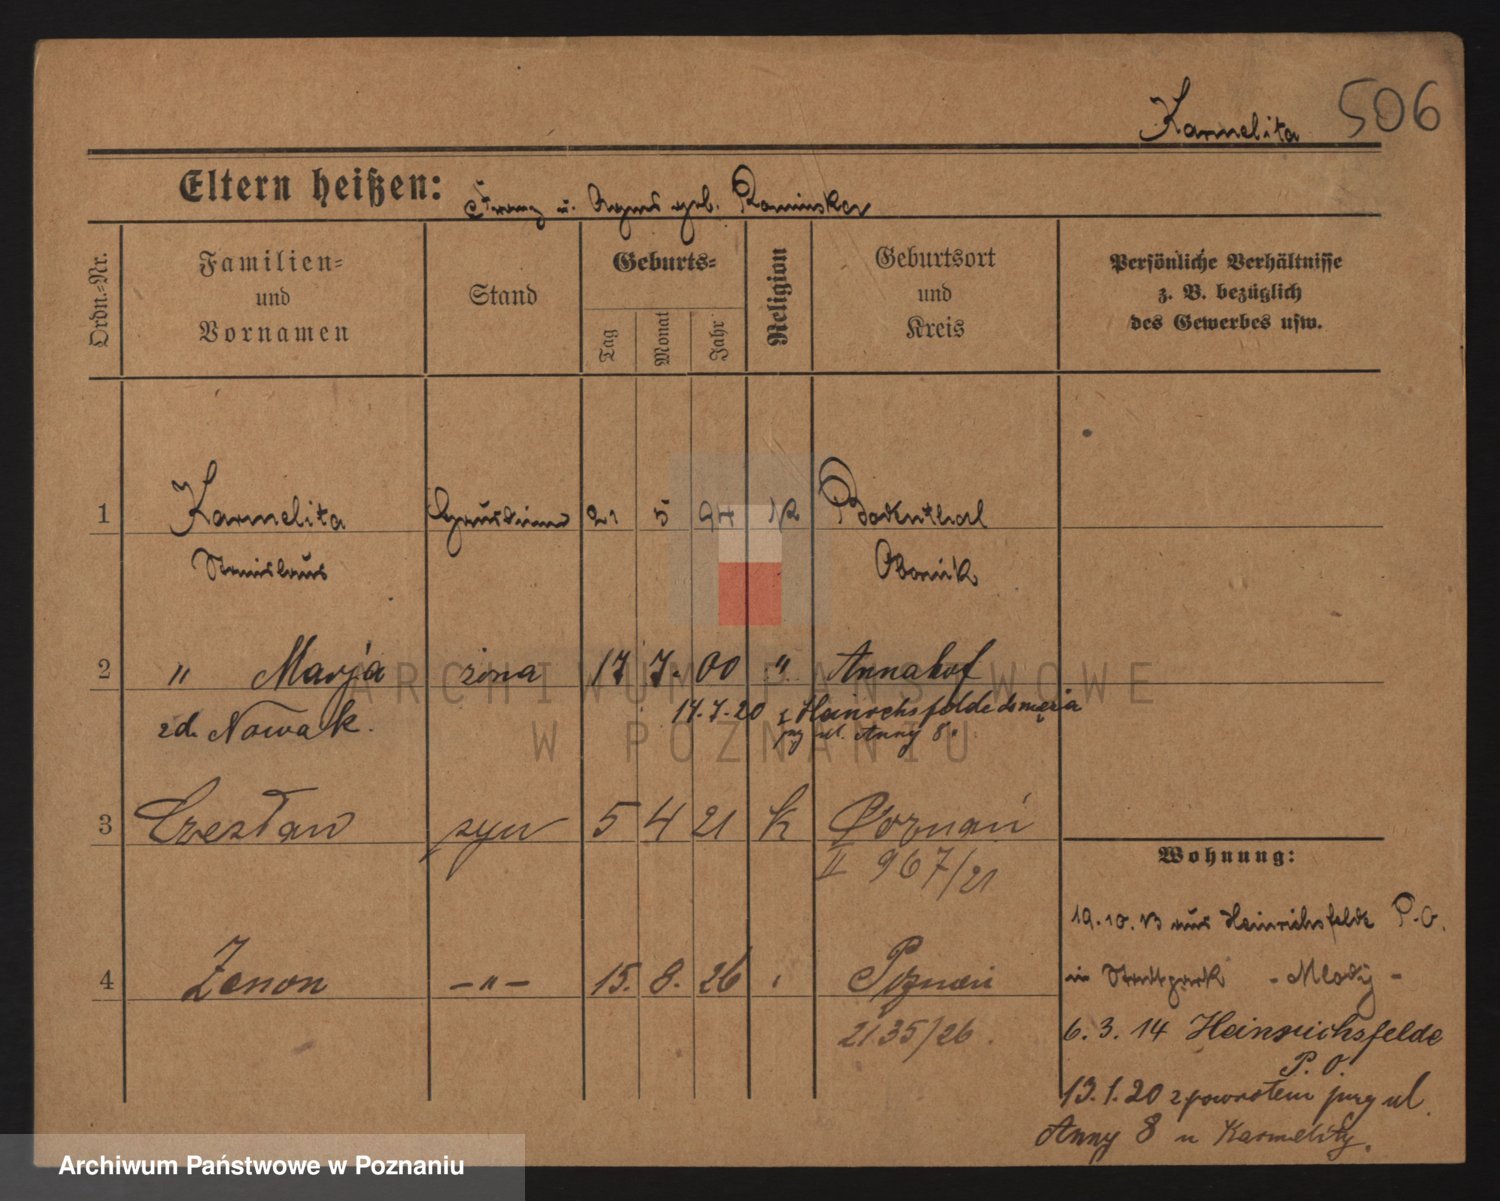 Karmelita 506
Eltern heißen: Franz u. Agnes geb. Kaminska
Ordn.-Nr.
Familien- und Vornamen
Stand
Geburts-
Tag Monat Jahr
Religion
Geburtsort und Kreis
Persönliche Verhältnisse
z. B. bezüglich
des Gewerbes usw.
1 Karmelita 21 5 94 k Bodenthal
Stanislaus Obornik
2 " Marja żona 17 7. 00 " Annahof
zd. Nowak. 17.7.20 z Heinrichsfelde do męża
przy ul. Anny 8.
3 Czesław syn 5 4 21 k Poznań
II 967/21
4 Zenon -"- 15. 8. 26 Poznań
2135/26.
Wohnung:
19.10.13 aus Heinrichsfelde P.O.
in Stadtpark - Mlody -
6.3.14 Heinrichsfelde
P.O.
13.1.20 z powrotem przy ul.
Anny 8 u Karmelity.
ARCHIWUM PAŃSTWOWE
W POZNANIU
Archiwum Państwowe w Poznaniu